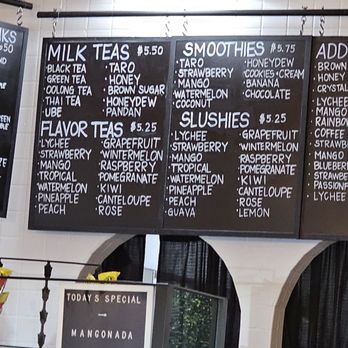 KS
50
MILK TEAS $5.50
• BLACK TEA
• GREEN TEA
• OOLONG TEA
• THAI TEA
• UBE
• TARO
• HONEY
• BROWN SUGAR
• HONEYDEW
• PANDAN
FLAVOR TEAS $5.25
• LYCHEE
• STRAWBERRY
• MANGO
• TROPICAL
• WATERMELON
• PINEAPPLE
• PEACH
• GRAPEFRUIT
• WINTERMELON
• RASPBERRY
• POMEGRANATE
• KIWI
• CANTELOUPE
• ROSE
SMOOTHIES $5.75
• TARO
• STRAWBERRY
• MANGO
• WATERMELON
• COCONUT
• HONEYDEW
• COOKIES + CREAM
• BANANA
• CHOCOLATE
SLUSHIES $5.25
• LYCHEE
• STRAWBERRY
• MANGO
• TROPICAL
• WATERMELON
• PINEAPPLE
• PEACH
• GUAVA
• GRAPEFRUIT
• WINTERMELON
• RASPBERRY
• POMEGRANATE
• KIWI
• CANTELOUPE
• ROSE
• LEMON
ADD
BROWN
HONEY
CRYSTAL
LYCHEE
MANGO
RAINBOW
COFFEE
STRAWB
MANGO
BLUEBER
STRAWBE
PASSION
LYCHEE
TODAY'S SPECIAL
MANGONADA